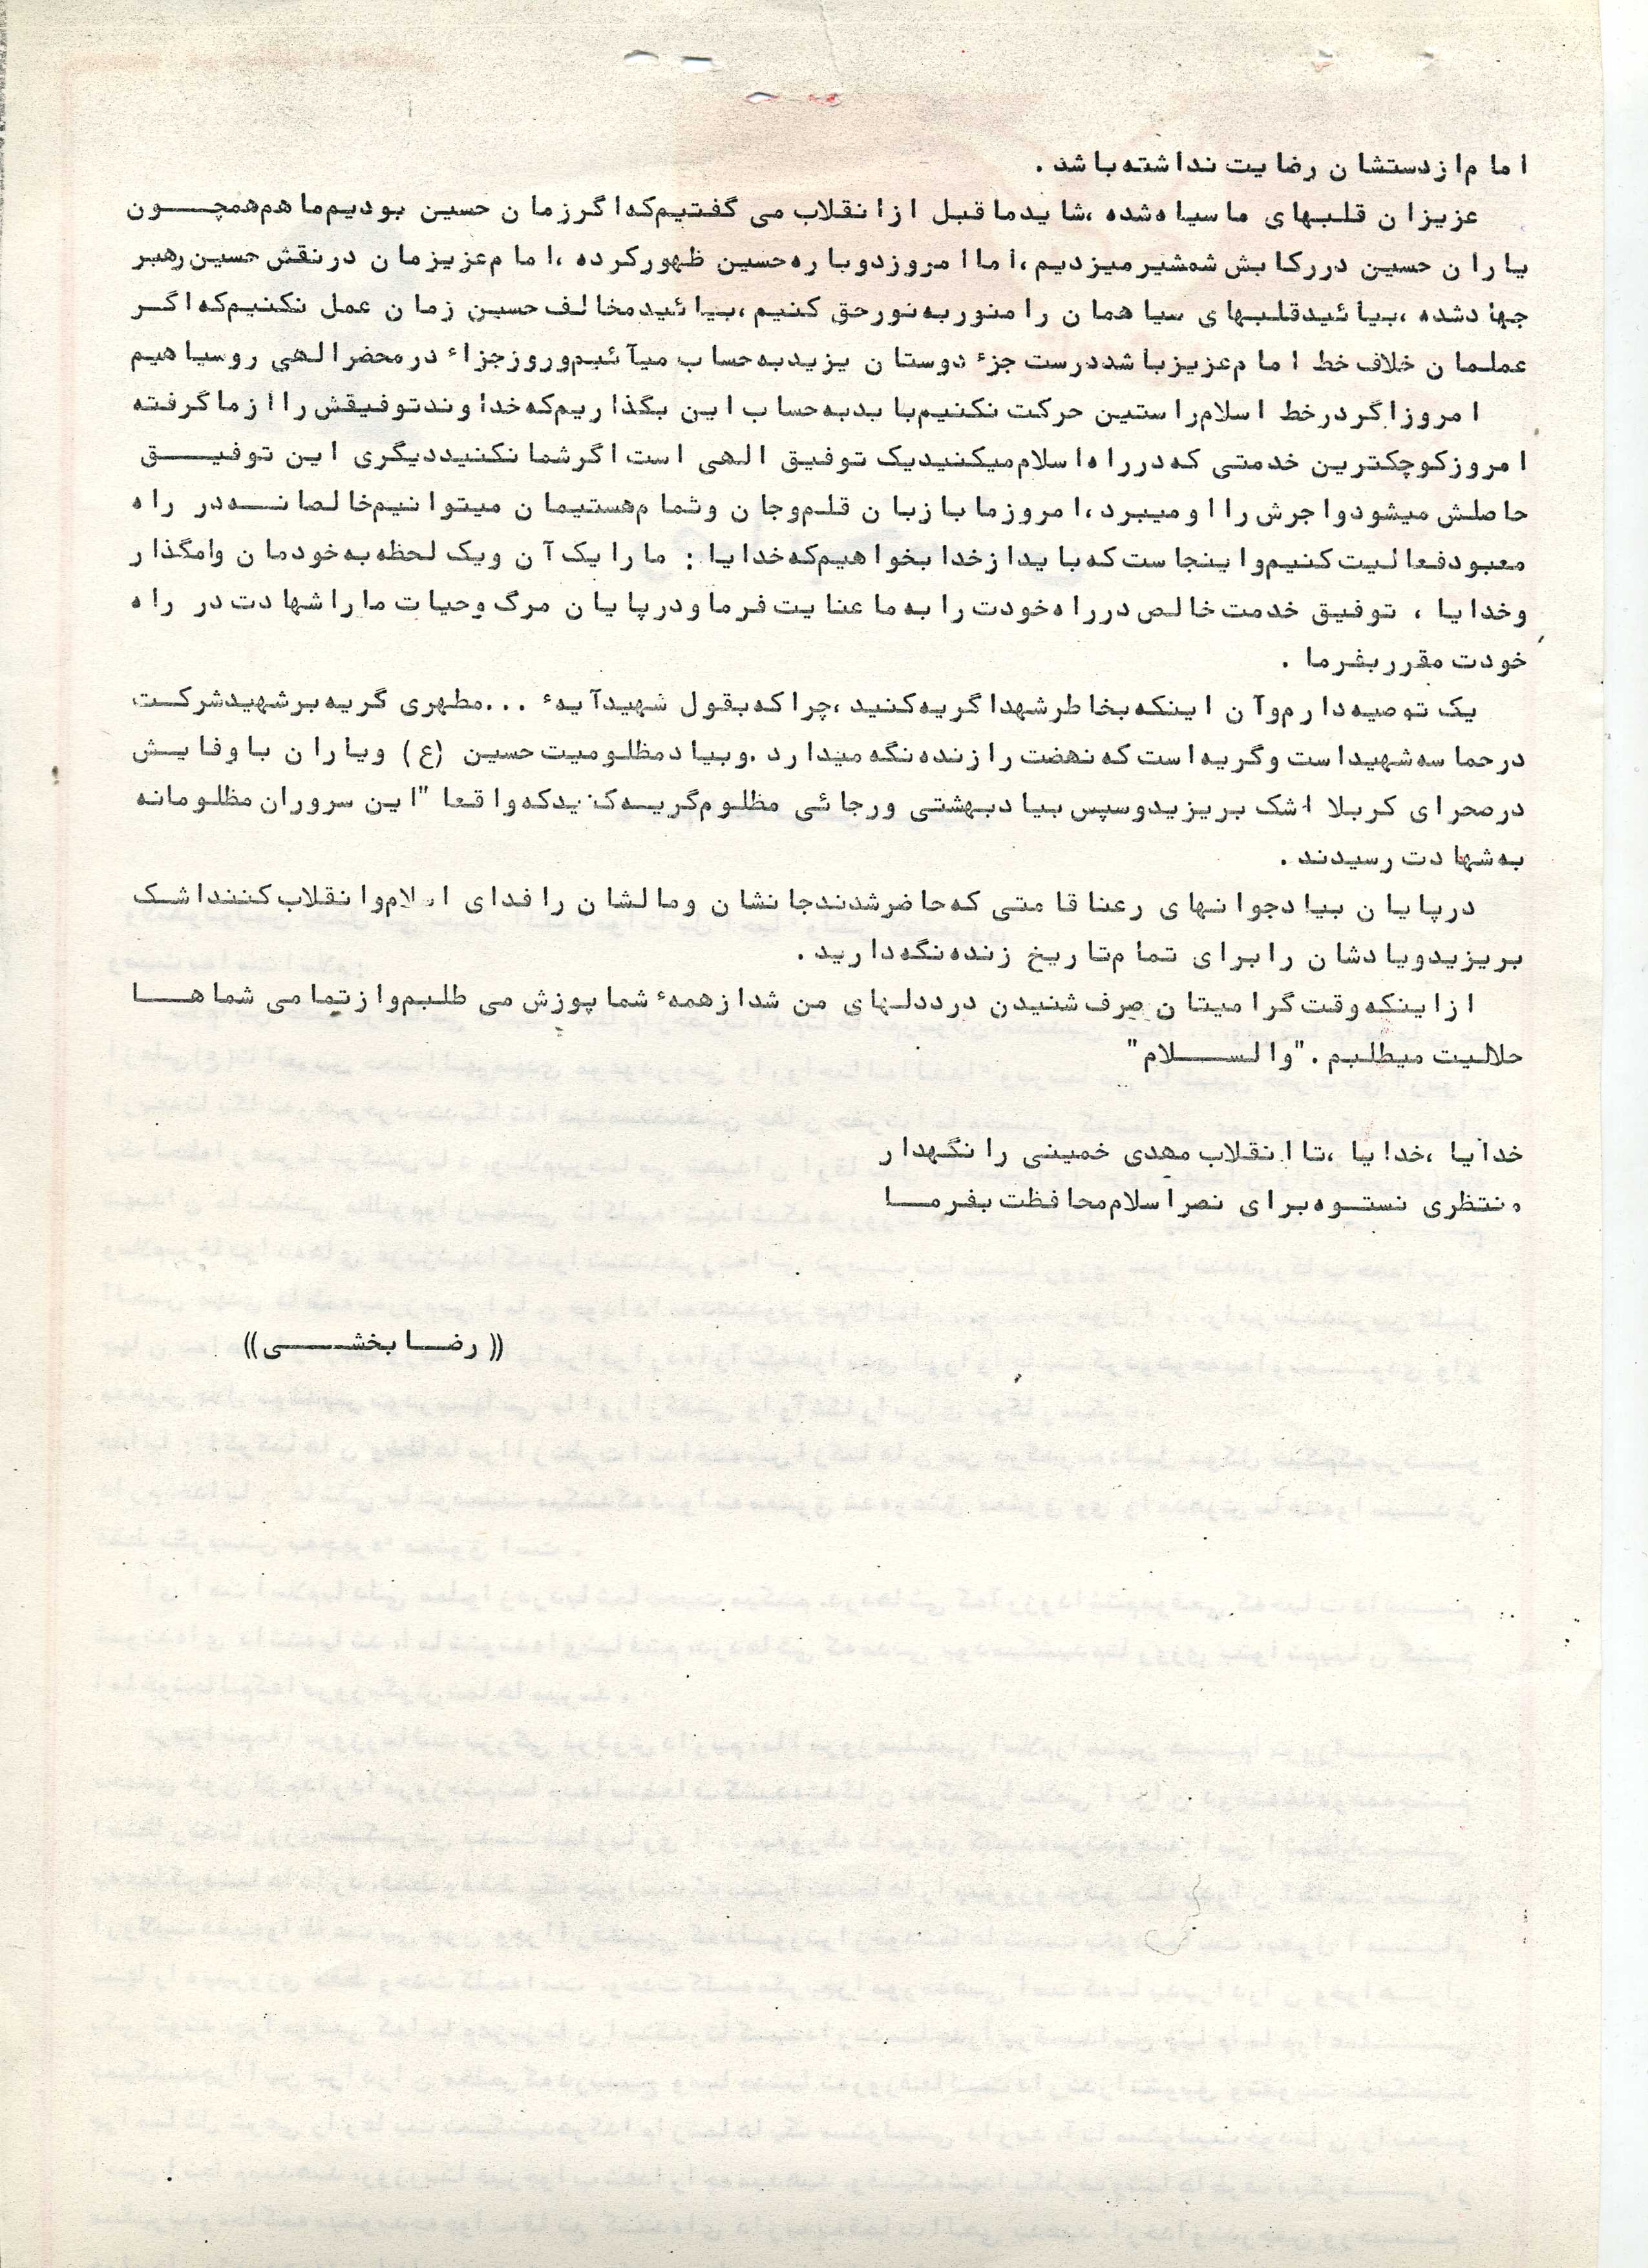 امام از دستشان رضایت نداشته باشد .
عزیزان قلبهای ما سیاه شده ، شاید ما قبل از انقلاب می گفتیم که اگر زمان حسین بودیم ما هم همچون
یاران حسین در رکابش شمشیر میزدیم ، اما امروز دوباره حسین ظهور کرده ، امام عزیزمان در نقش حسین رهبر
جهاد شده ، بیائید قلبهای سیاهمان را منور به نور حق کنیم ، بیائید مخالف حسین زمان عمل نکنیم که اگر
عملمان خلاف خط امام عزیز باشد درست جزء دوستان یزید به حساب میآئیم و روز جزاء در محضر الهی روسیاهیم
امروز اگر در خط اسلام راستین حرکت نکنیم باید به حساب این بگذاریم که خداوند توفیقش را از ما گرفته
امروز کوچکترین خدمتی که در راه اسلام میکنید یک توفیق الهی است اگر شما نکنید دیگری این توفیق
حاصلش میشود و اجرش را او میبرد ، امروز ما با زبان قلم و جان و تمام هستیمان میتوانیم خالصانه در راه
معبود فعالیت کنیم و اینجاست که باید از خدا بخواهیم که خدایا : ما را یک آن و یک لحظه به خودمان وامگذار
و خدایا ، توفیق خدمت خالص در راه خودت را به ما عنایت فرما و در پایان مرگ و حیات ما را شهادت در راه
خودت مقرر بفرما .
یک توصیه دارم و آن اینکه بخاطر شهدا گریه کنید ، چرا که بقول شهید آیهء ... مطهری گریه بر شهید شرکت
در حماسه شهید است و گریه است که نهضت را زنده نگه میدارد . و بیاد مظلومیت حسین (ع) و یاران باوفایش
در صحرای کربلا اشک بریزید و سپس بیاد بهشتی و رجائی مظلوم گریه کنید که واقعا "این سروران مظلومانه
به شهادت رسیدند .
در پایان بیاد جوانهای رعنا قامتی که حاضر شدند جانشان و مالشان را فدای اسلام و انقلاب کنند اشک
بریزید و یادشان را برای تمام تاریخ زنده نگه دارید .
از اینکه وقت گرامیتان صرف شنیدن درددلهای من شد از همهء شما پوزش می طلبم و از تمامی شماها
حلالیت میطلبم . "والسلام"
خدایا ، خدایا ، تا انقلاب مهدی خمینی را نگهدار
منتظری نستوه برای نصر اسلام محافظت بفرما
(( رضا بخشی ))